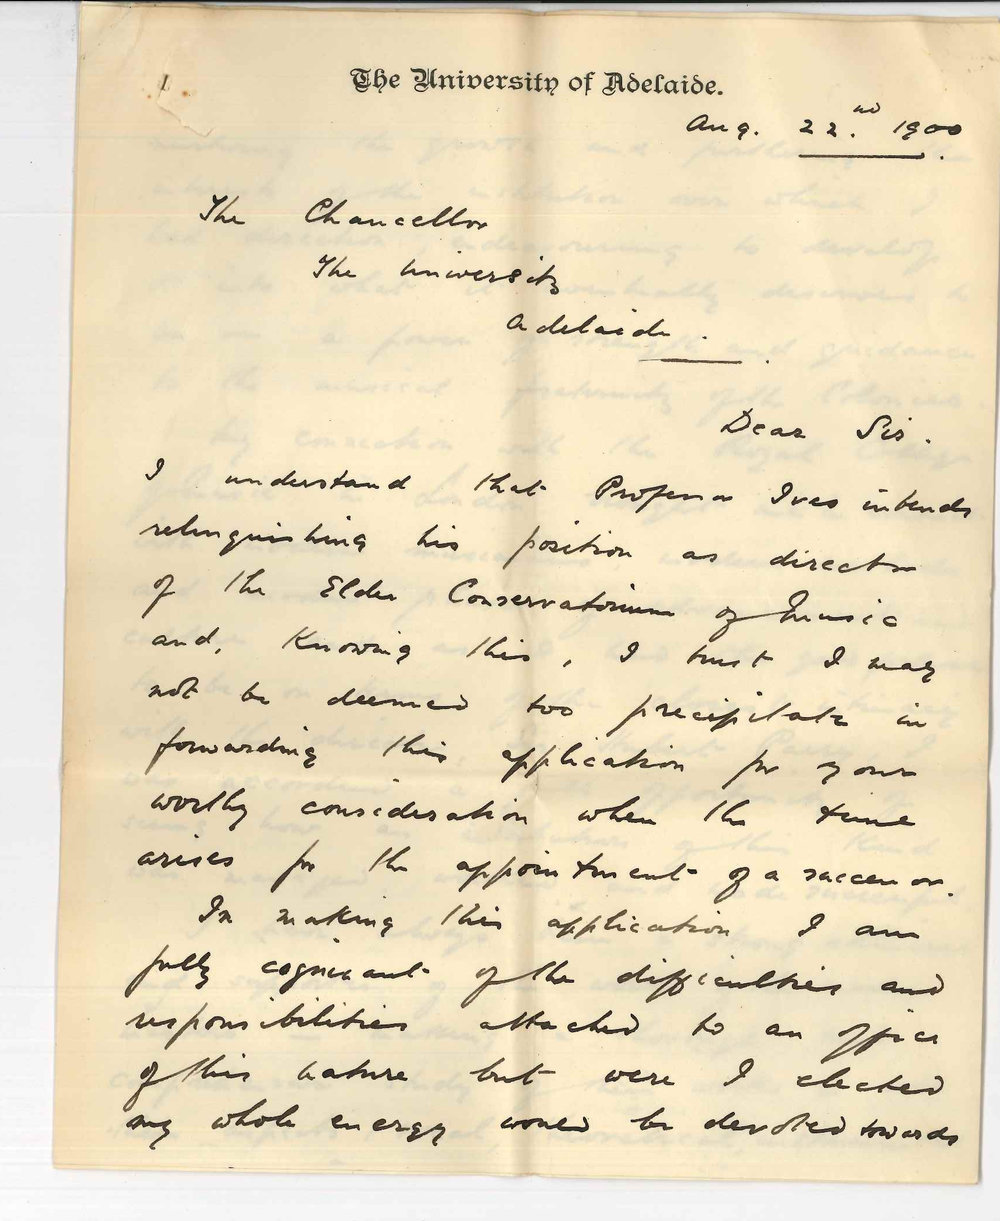 The University of Adelaide.
Aug. 22.nd 1900
The Chancellor
The University
Adelaide.
Dear Sir.
I understand that Professor Ives intends
relinquishing his position as director
of the Elder Conservatorium of Music
and, knowing this, I trust I may
not be deemed too precipitate in
forwarding this application for your
worthy consideration when the time
arises for the appointment of a successor.
In making this application I am
fully cognizant of the difficulties and
responsibilities attached to an office
of this nature but were I elected
my whole energy would be devoted towards